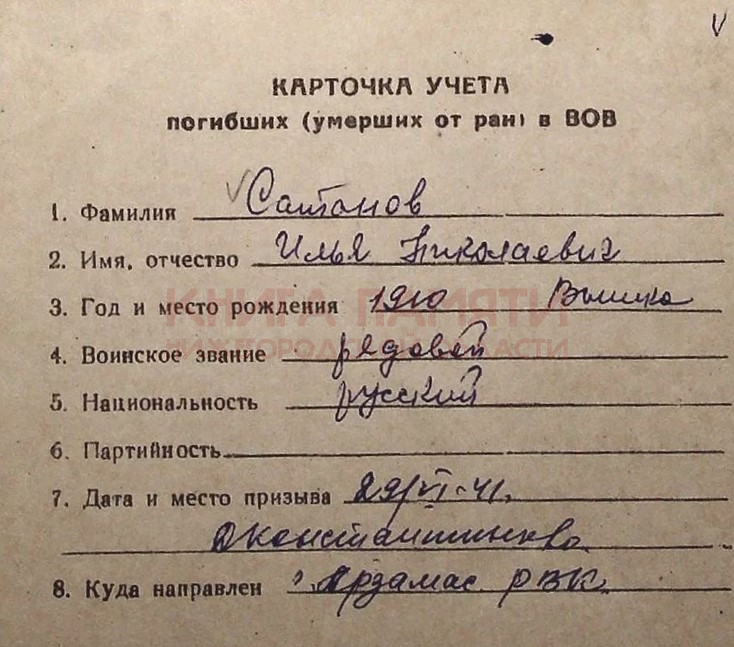 КАРТОЧКА УЧЕТА
погибших (умерших от ран) в ВОВ
1. Фамилия Сатанов
2. Имя, отчество Илья Николаевич
3. Год и место рождения 1910 Вышка
КНИГА ПАМЯТИ
4. Воинское звание рядовой
НИЖГОРОДСКОЙ ОБЛАСТИ
5. Национальность русский
6. Партийность
7. Дата и место призыва 29/VI-41.
Дконстантиново
8. Куда направлен Арзамас РВК.